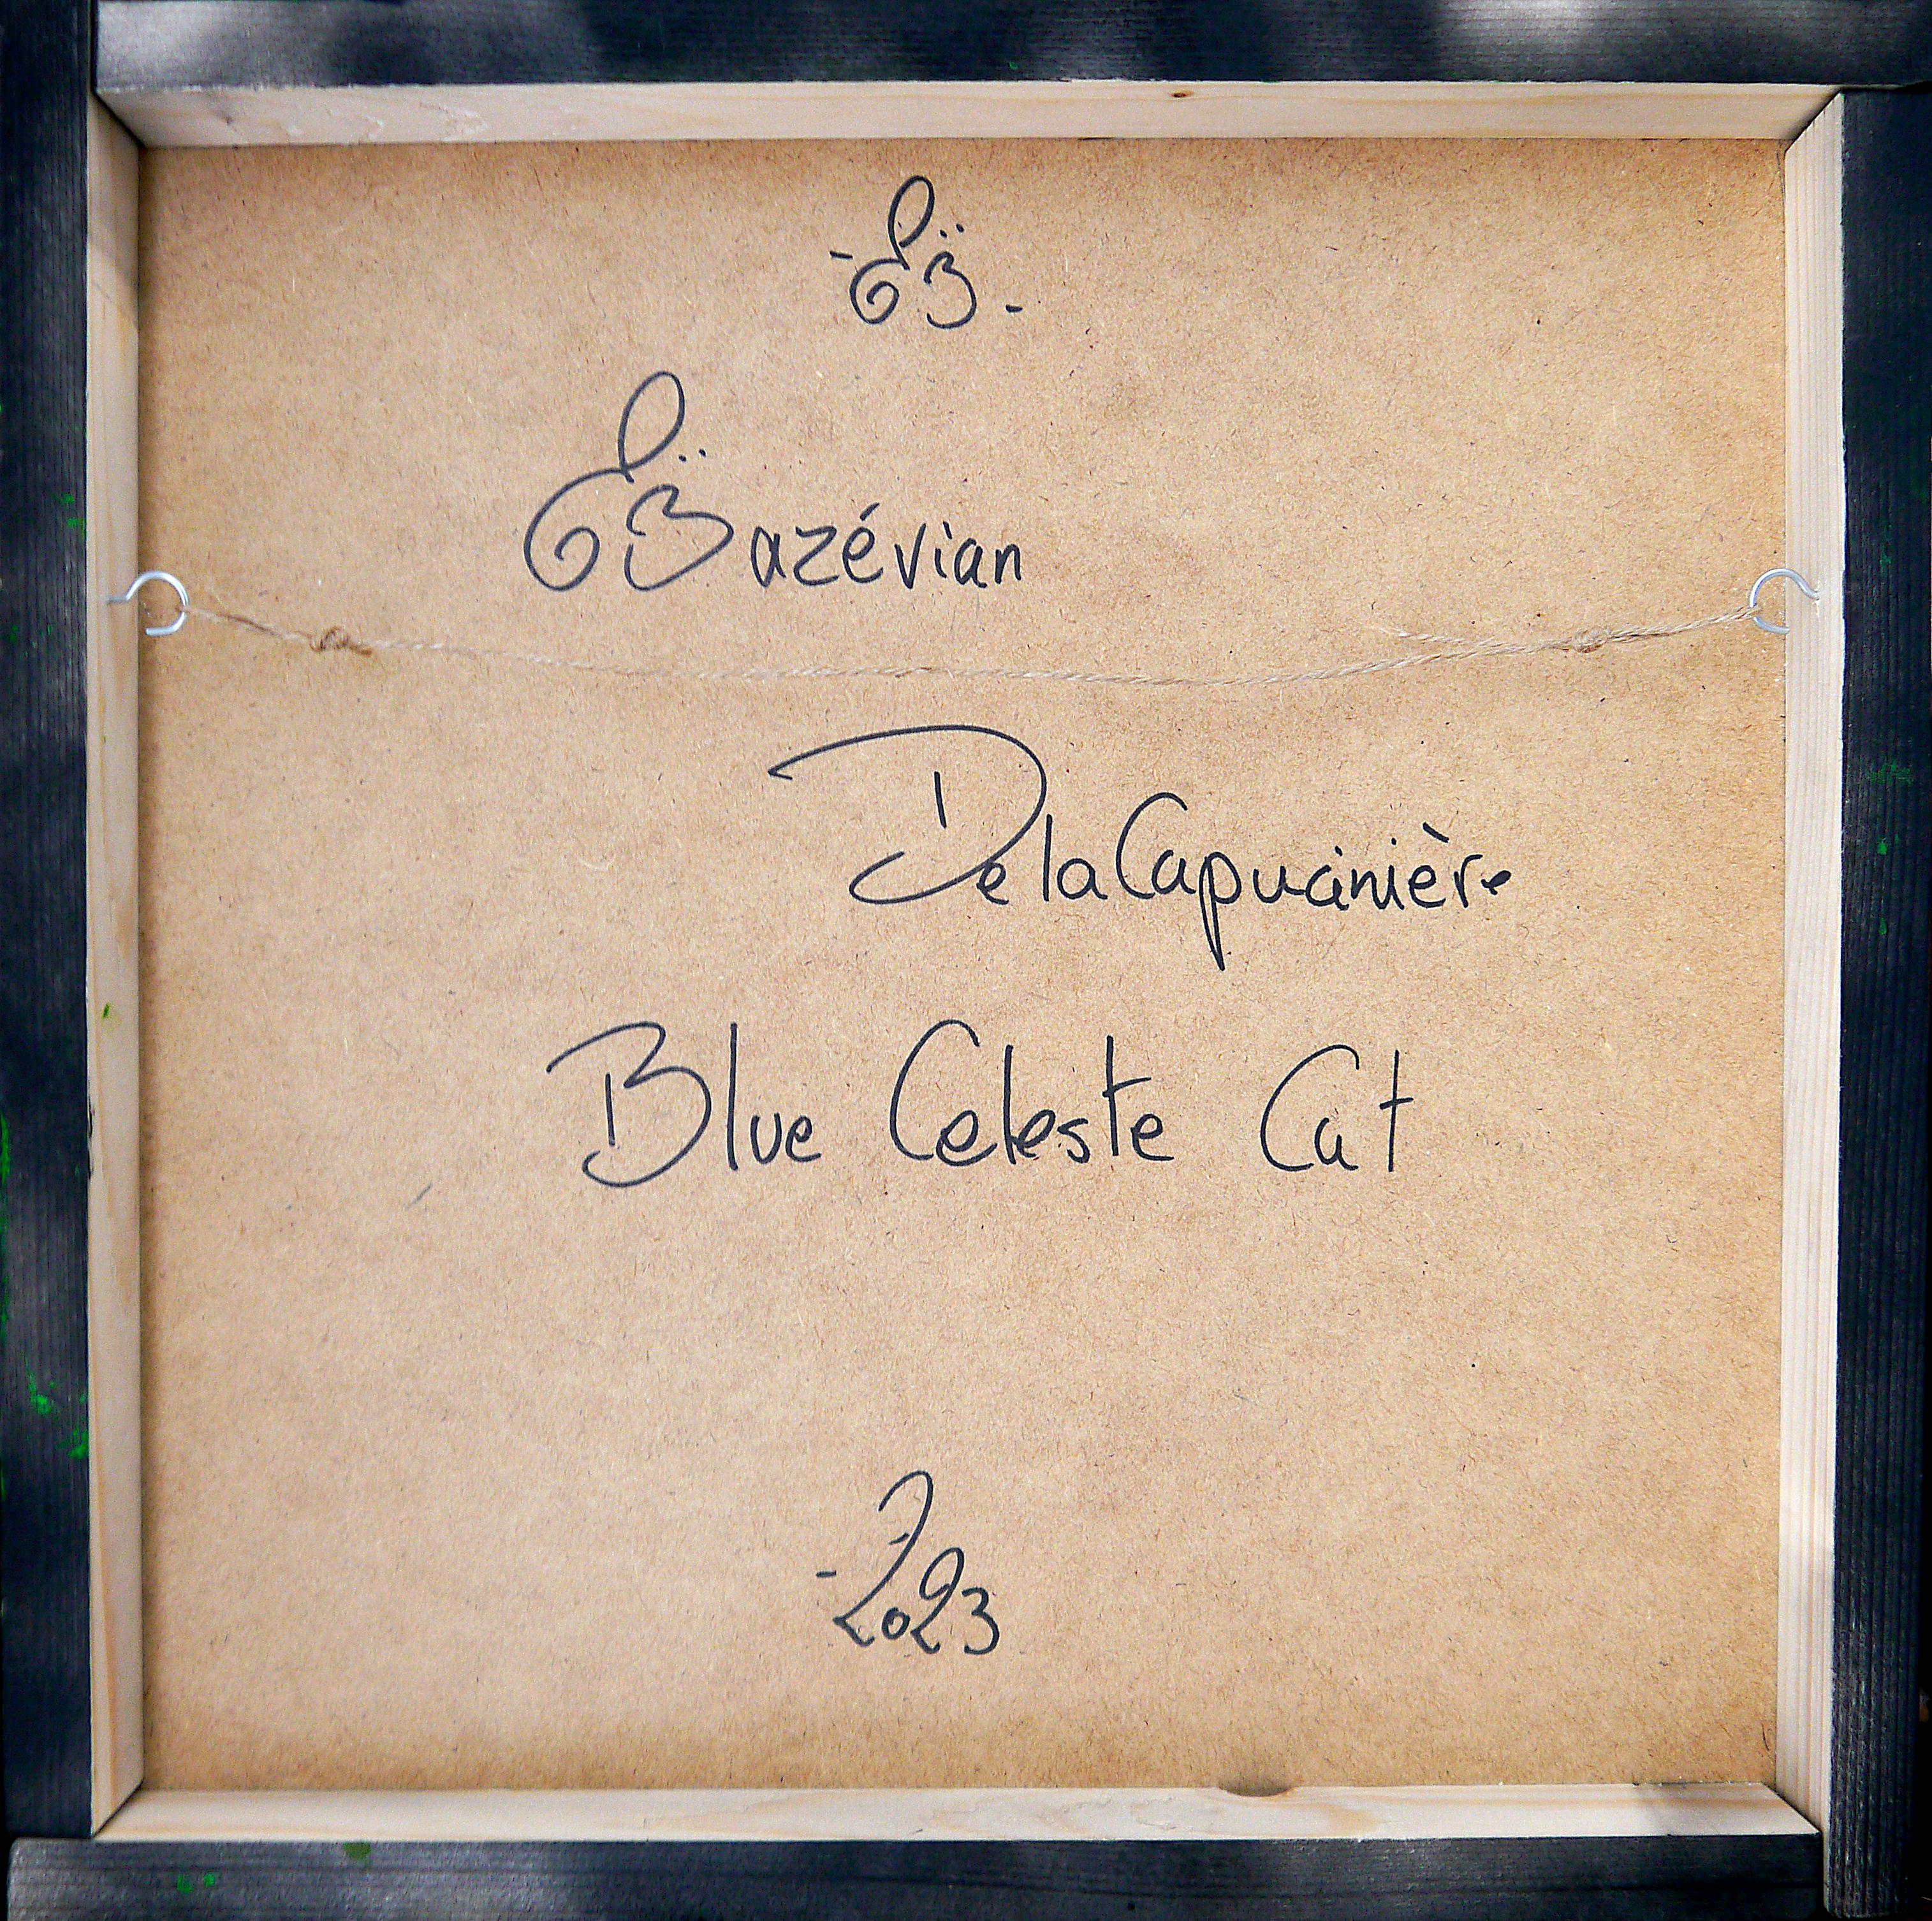 -EB̈.
EB̈azévian
DelaCapucinière
Blue Celeste Cat
-2023